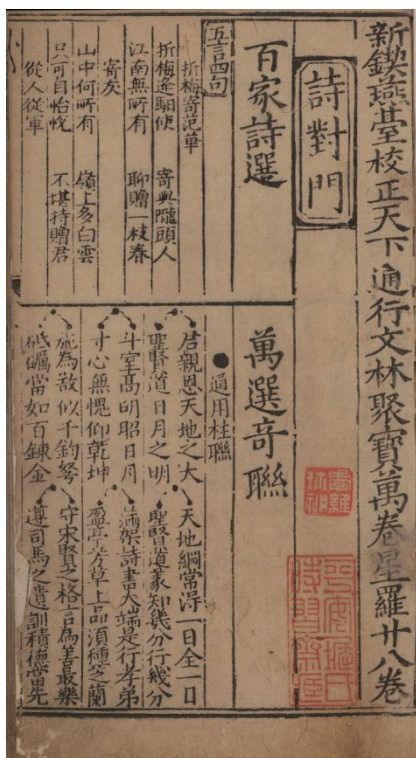 新鍥燕臺校正天下通行文林聚寶萬卷星羅廿八卷
詩對門
百家詩選
五言四句
折梅寄范華
折梅逢馹使 寄與隴頭人
江南無所有 聊贈一枝春
寄矣
山中何所有 嶺上多白雲
只可自怡悅 不堪持贈君
從人從軍
萬選奇聯
●通用柱聯
君親恩天地之大 天地綱常淂一日全一日
聖賢道日月之明 聖賢道義知幾分行幾分
斗室高明昭日月 滿架詩書大端是行孝弟
寸心無愧仰乾坤 盈亭芳草上品須種芝蘭
為敖似千鈞弩 守宋賢之格言為善最樂
砥礪當如百鍊金 遵司馬之遺訓積德當先
平安堀氏
時習齋